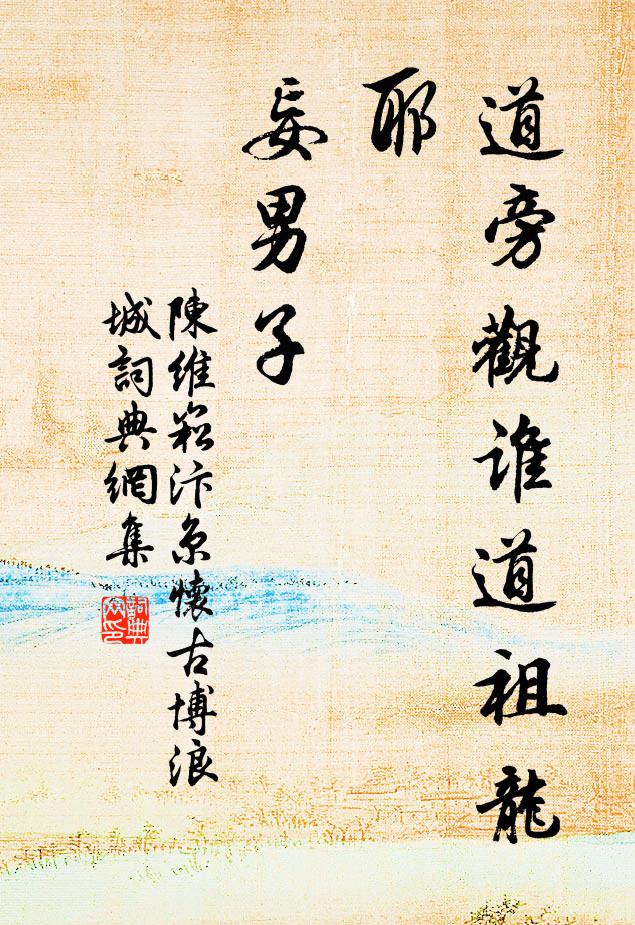 道旁觀誰道祖龍
耶
妄男子
陳維崧汴京懷古博浪
城詞典網集
詞典